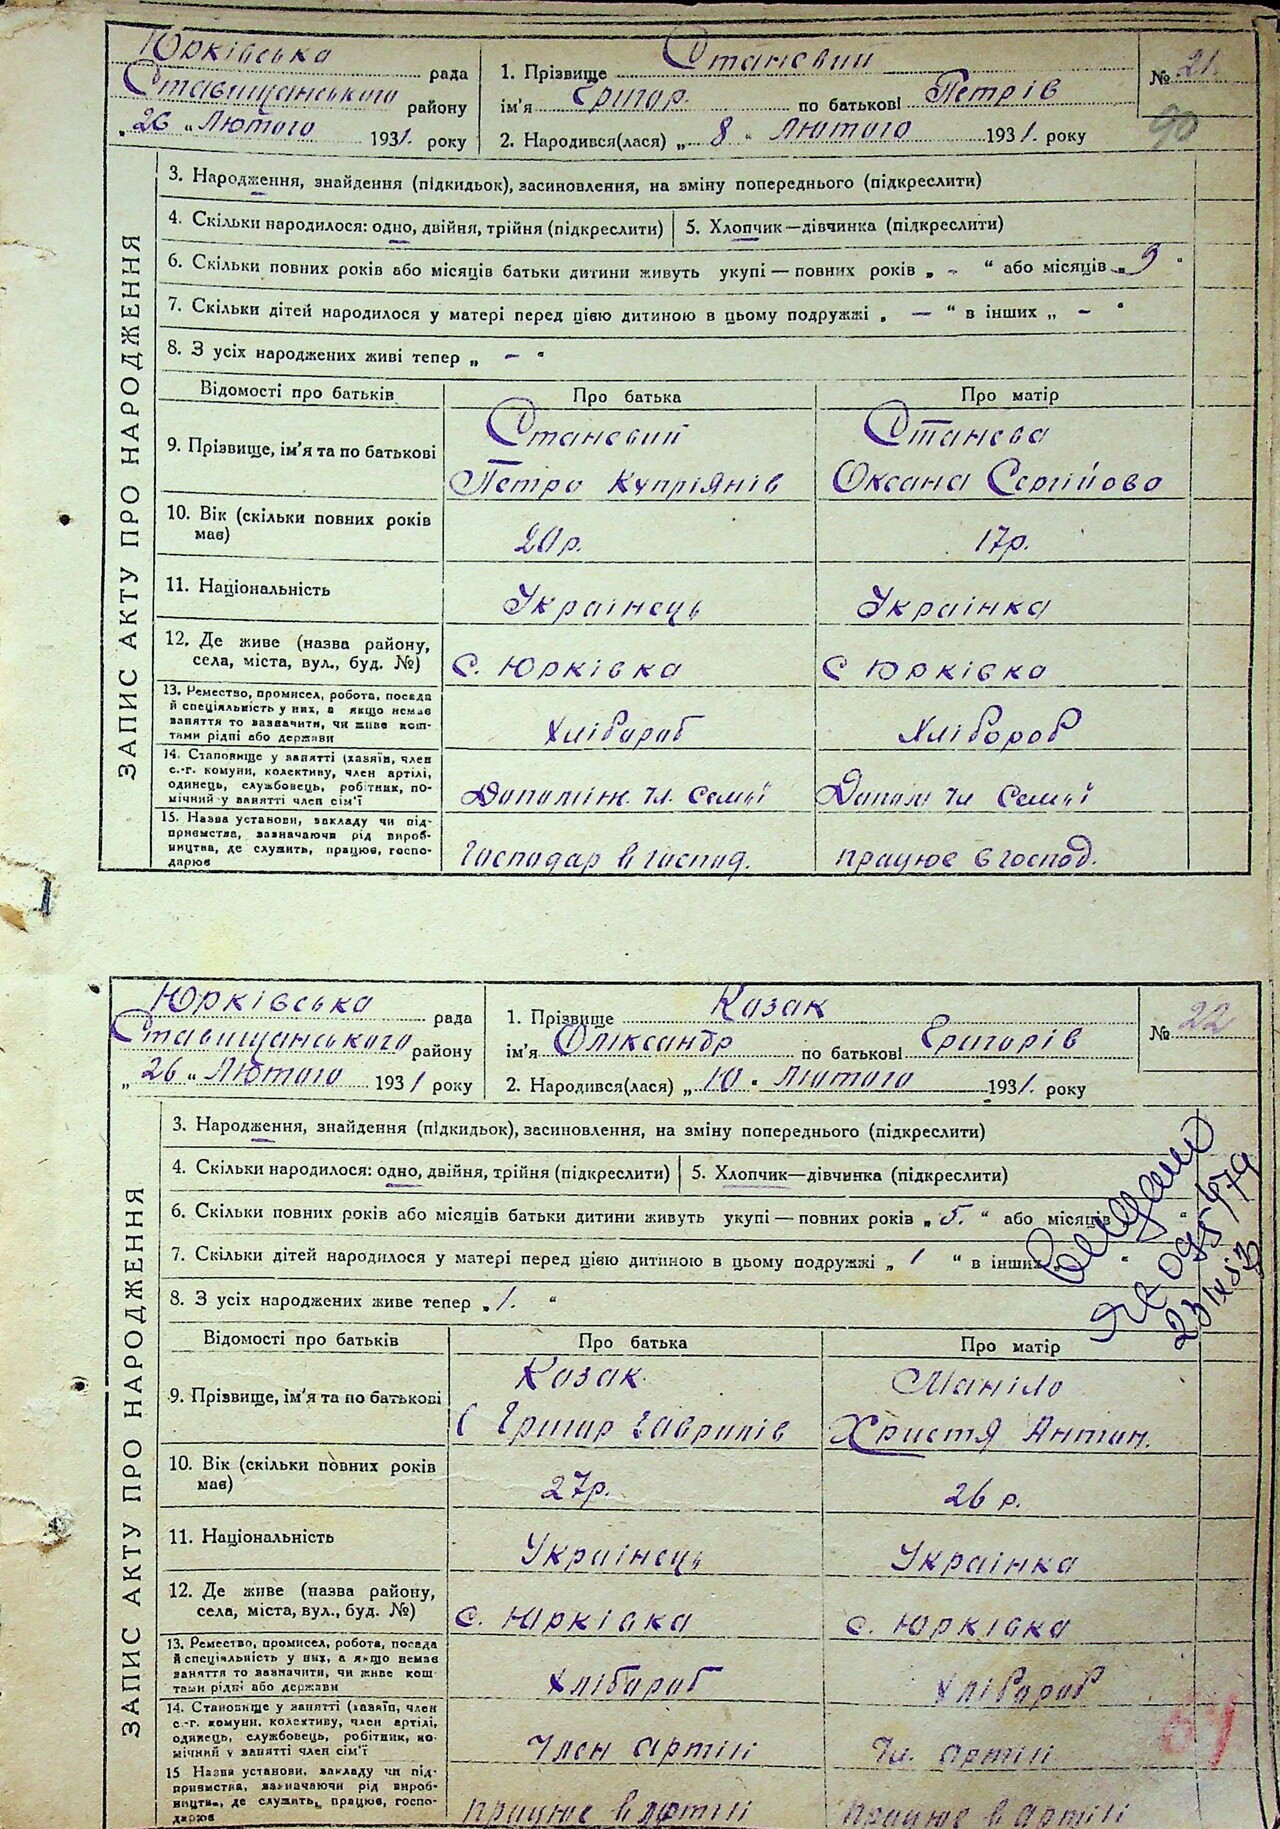 Юрківська рада
Ставищанського району
„26“ Лютого 1931. року
1. Прізвище Станевий
ім'я Григор. по батькові Петрів
2. Народився(лася) „8“ Лютого 1931. року
№ 21.
90
ЗАПИС АКТУ ПРО НАРОДЖЕННЯ
3. Народження, знайдення (підкидьок), засиновлення, на зміну попереднього (підкреслити)
4. Скільки народилося: одно, двійня, трійня (підкреслити)
5. Хлопчик—дівчинка (підкреслити)
6. Скільки повних років або місяців батьки дитини живуть укупі — повних років „ - “ або місяців „9“
7. Скільки дітей народилося у матері перед цією дитиною в цьому подружжі „ — “ в інших „ – “
8. З усіх народжених живі тепер „ – “
Відомості про батьків
Про батька
Про матір
9. Прізвище, ім'я та по батькові
Станевий
Петро Купріянів
Станева
Оксана Сергійова
10. Вік (скільки повних років має)
20 р.
17 р.
11. Національність
Українець
Українка
12. Де живе (назва району,
села, міста, вул., буд. №)
с. Юрківка
с Юрківка
13. Ремество, промисел, робота, посада
й спеціяльність у них, а якщо немає
заняття то зазначити, чи живе кош-
тами рідні або держави
Хлібороб
Хлібороб
14. Становище у занятті (хазяїн, член
с.-г. комуни, колективу, член артілі,
одинець, службовець, робітник, по-
мічний у занятті член сім'ї
Допоміж. чл. семьї
Допом чл семьї
15. Назва установи, закладу чи під-
приємства, зазначаючи рід вироб-
ництва, де служить, працює, госпо-
дарює
господар в господ.
працює в господ.
Юрківська рада
Ставищанського району
„26“ Лютого 1931 року
1. Прізвище Козак
ім'я Оліксандр по батькові Григорів
2. Народився(лася) „10“ Лютого 1931. року
№ 22
ЗАПИС АКТУ ПРО НАРОДЖЕННЯ
3. Народження, знайдення (підкидьок), засиновлення, на зміну попереднього (підкреслити)
4. Скільки народилося: одно, двійня, трійня (підкреслити)
5. Хлопчик—дівчинка (підкреслити)
6. Скільки повних років або місяців батьки дитини живуть укупі — повних років „5.“ або місяців
7. Скільки дітей народилося у матері перед цією дитиною в цьому подружжі „1“ в інших
8. З усіх народжених живе тепер „1.“
Відомості про батьків
Про батька
Про матір
9. Прізвище, ім'я та по батькові
Козак
Григор Гаврилів
Маніло
Христя Антон.
10. Вік (скільки повних років має)
27 р.
26 р.
11. Національність
Українець
Українка
12. Де живе (назва району,
села, міста, вул., буд. №)
с. Юрківка
с. Юрківка
13. Ремество, промисел, робота, посада
й спеціяльність у них, а якщо немає
заняття то зазначити, чи живе кош
тами рідні або держави
Хлібороб
Хлібороб
14. Становище у занятті (хазяїн, член
с.-г. комуни, колективу, член артілі,
одинець, службовець, робітник, по-
мічний у занятті член сім'ї
Член артілі
Чл. артілі
15 Назва установи, закладу чи під-
приємства, зазначаючи рід вироб-
ництва, де служить, працює, госпо-
дарює
працює в артілі
працює в артілі